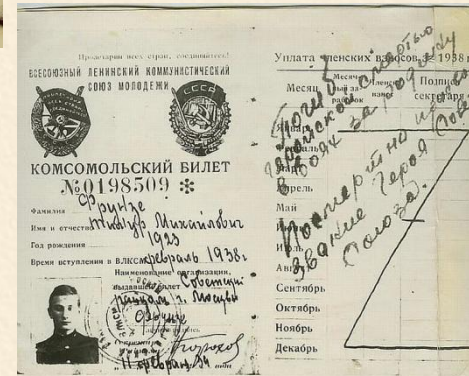 Пролетарии всех стран, соединяйтесь!
ВСЕСОЮЗНЫЙ ЛЕНИНСКИЙ КОММУНИСТИЧЕСКИЙ
СОЮЗ МОЛОДЕЖИ
СССР
КОМСОМОЛЬСКИЙ БИЛЕТ
№0198509
Фамилия Фрунзе
Имя и отчество Тимур Михайлович
Год рождения 1923
Время вступления в ВЛКСМ февраль 1938г
Наименование организации,
выдавшей билет Советский
райком г. Москвы
февраля
Уплата членских взносов 1938 г
Месяц
Месячный
заработок
Членский
взнос
Подпись
секретаря
Январь
Февраль
Март
Апрель
Май
Июнь
Июль
Август
Сентябрь
Октябрь
Ноябрь
Декабрь
Погиб
геройской смертью
в боях за родину
Посмертно
звание Героя
Союза.